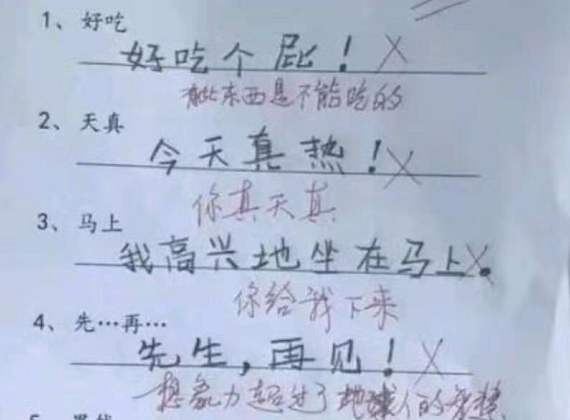 1、好吃
好吃个屁！
有些东西是不能吃的
2、天真
今天真热！
你真天真
3、马上
我高兴地坐在马上。
你给我下来
4、先…再…
先生，再见！
想象力超过了地球人的